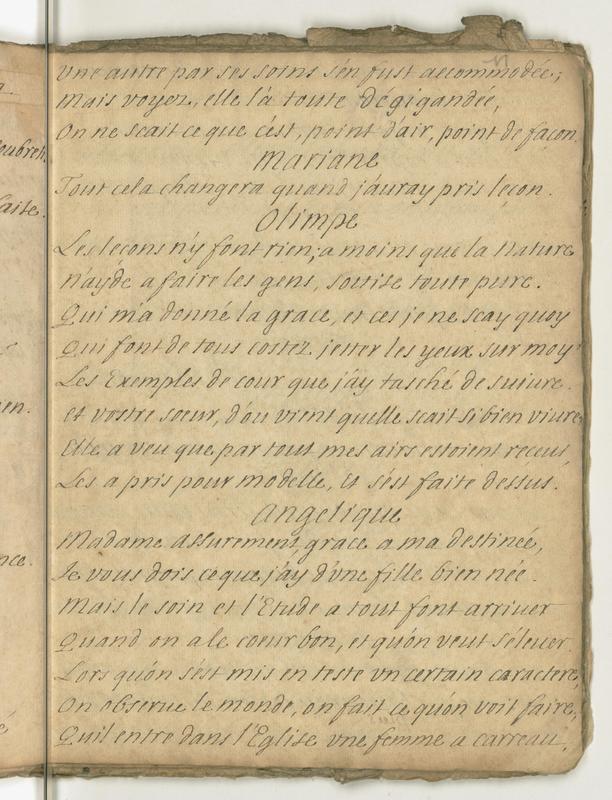 vne autre par ses soins s'en fust accommodée;
Mais voyez, elle l'a toute dégigandée,
On ne scait ce que c'est, point d'air, point de facon.
Mariane
Tout cela changera quand j'auray pris leçon.
Olimpe
Les lecons n'y font rien; a moins que la Nature
N'ayde a faire les gens, sottise toute pure.
Qui m'a donné la grace, et ces je ne scay quoy
Qui font de tous costez jetter les yeux sur moy
Les Exemples de cour que j'ay tasché de suiure.
et vostre soeur, d'ou vient qu'elle scait si bien viure
Elle a veu que par tout mes airs estoient receus,
Les a pris pour modelle, et s'est faite dessus.
Angelique
Madame assurement, grace a ma destinée,
Je vous dois ce que j'ay d'vne fille bien née.
Mais le soin et l'Etude a tout font arriuer
Quand on a le coeur bon, et qu'on veut s'éleuer.
Lors qu'on s'est mis en teste vn certain caractere,
On obserue le monde, on fait ce qu'on voit faire,
Qu'il entre dans l'Eglise vne femme a carreau,
oubret
faite.
en.
nce.